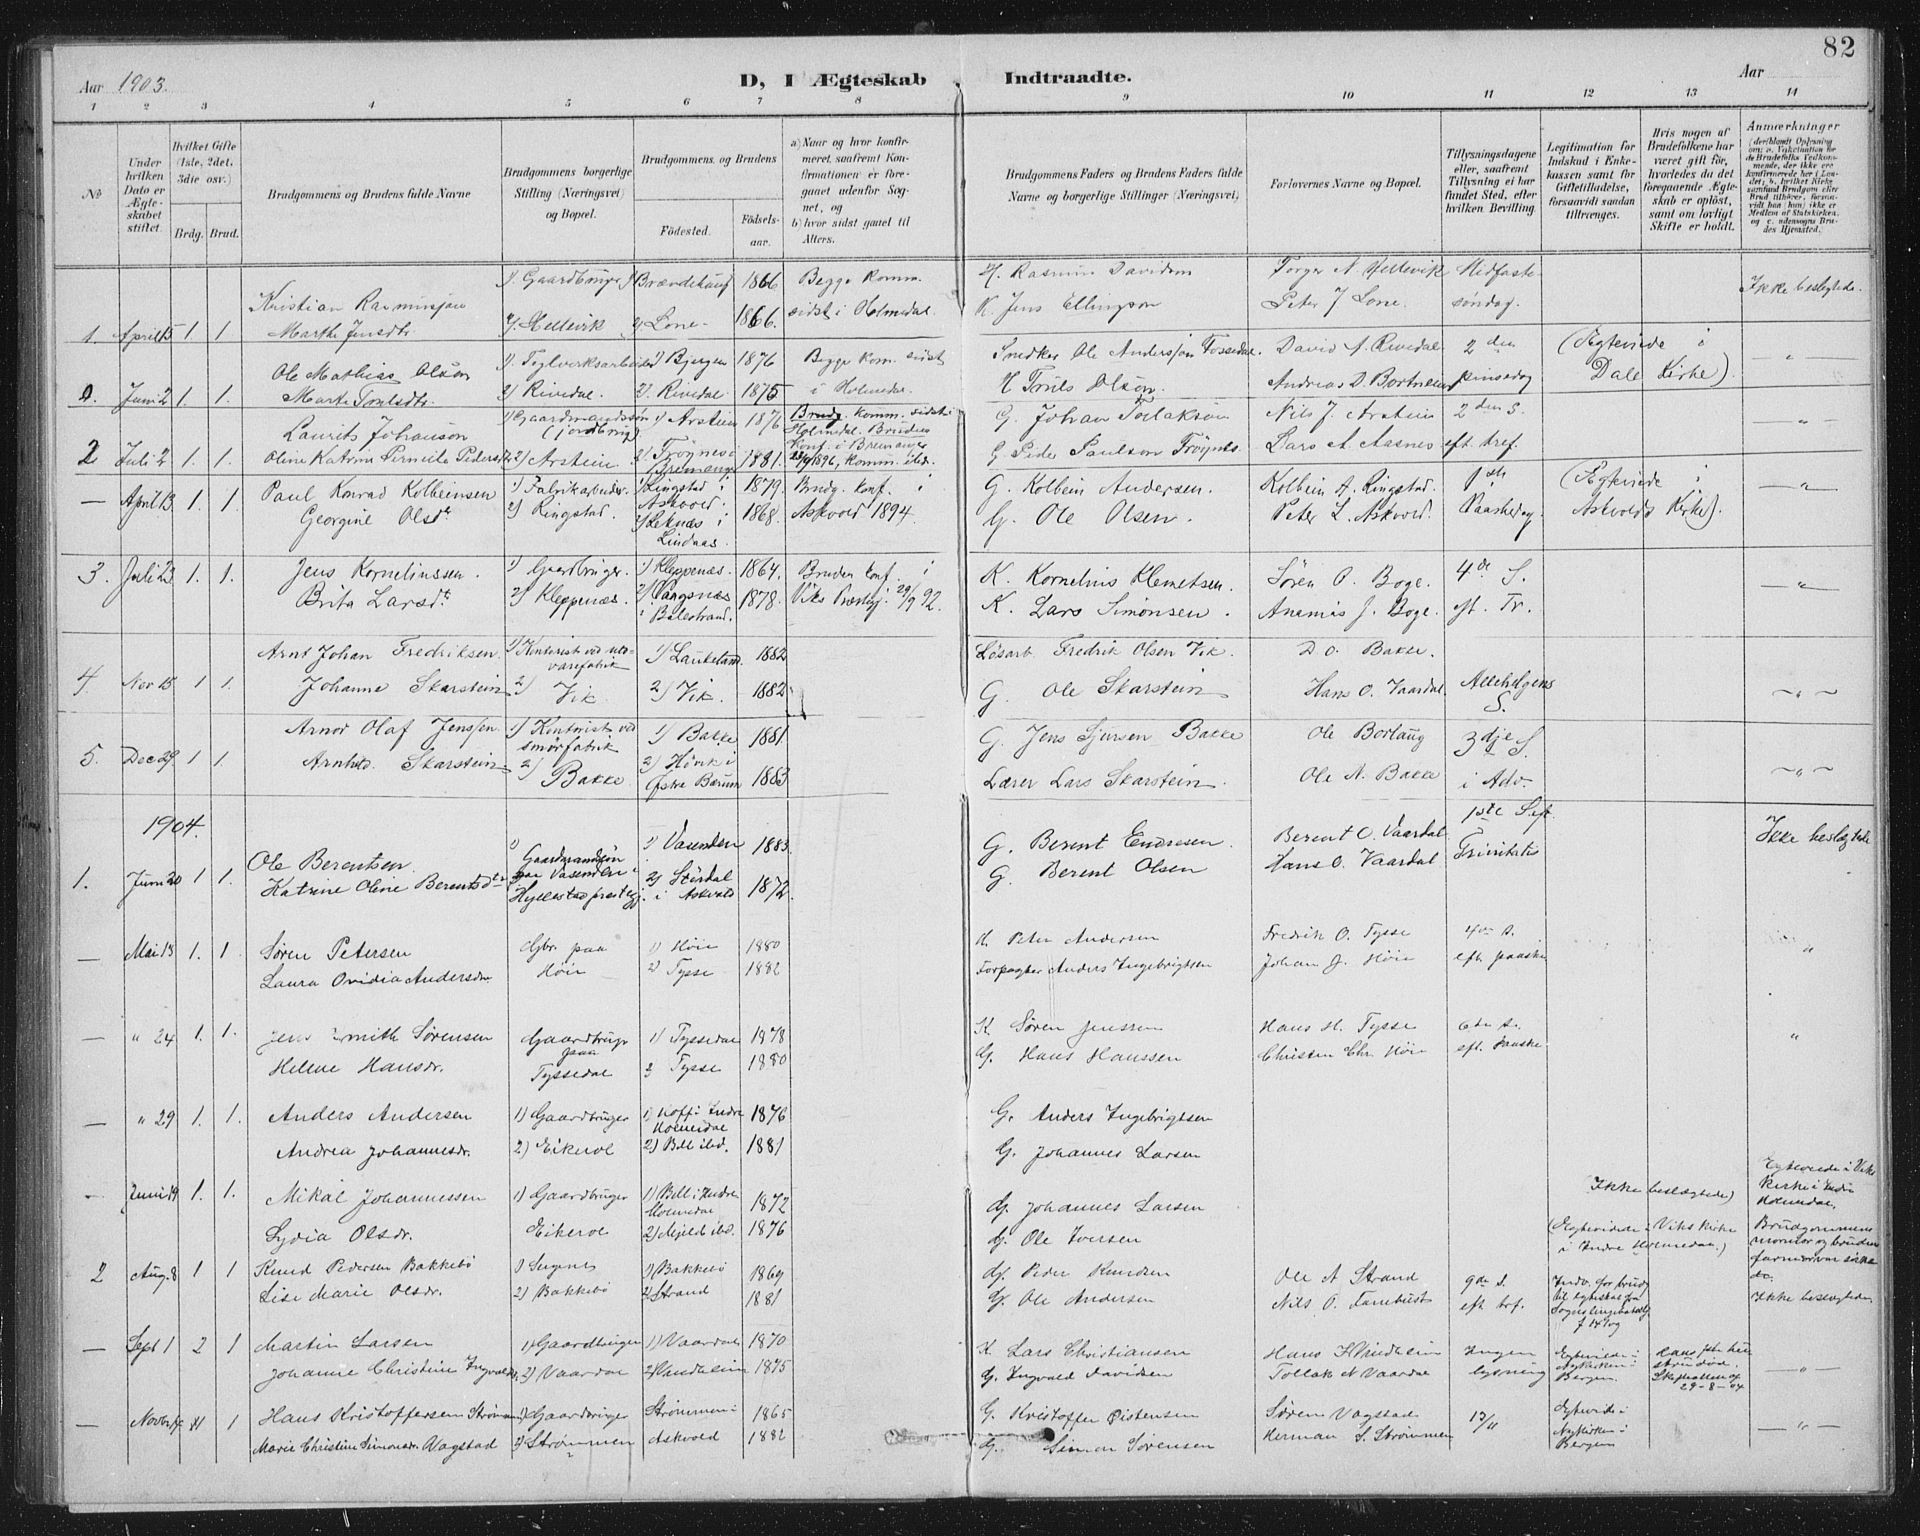 82
Aar 1903. D, I Ægteskab Indtraadte. Aar
1 2 3 4 5 6 7 8 9 10 11 12 13 14
No
Under hvilken Dato er Ægteskabet stiftet.
Hvilket Gifte (1ste, 2det, 3die osv.)
Brdg. Brud.
Brudgommens og Brudens fulde Navne
Brudgommens borgerlige Stilling (Næringsvei) og Bopæl.
Brudgommens og Brudens
Fødested. Fødselsaar.
a) Naar og hvor konfirmeret, saafremt Konfirmationen er foregaaet udenfor Sognet, og
b) hvor sidst gaaet til Alters.
Brudgommens Faders og Brudens Faders fulde Navne og borgerlige Stillinger (Næringsvei)
Forlovernes Navne og Bopæl.
Tillysningsdagene eller, saafremt Tillysning ei har fundet Sted, efter hvilken Bevilling.
Legitimation for Indskud i Enkekassen samt for Giftetilladelse, forsaavidt saadan tiltrænges.
Hvis nogen af Brudefolkene har været gift før, hvorledes da det foregaaende Ægteskab er opløst, samt om lovligt Skifte er holdt.
Anmærkninger
1. April 15 1. 1. Kristian Rasmusson 1) Gaardbruger 1866 Begge komm. H. Rasmus Davidson Torger N Hellevik Midfaste Ikke beslegtede.
Marthe Jensdtr 2) Hellevik 2) Lone 1866. sidst i Holmedal. K. Jens Ellingson Peter J Lone. søndag.
Juni 2 1. 1. Ole Mathias Olson 1) Teglverksarbeider 1) Bjergen 1876 Begge kom. sidst Snedker Ole Anderson Fossedal. David A. Rivedal 2den (Ægteviede i „
2) Rivedal 2) Rivedal 1875 i Holmedal. Olson. Andreas D. pinsedag Dale Kirke).
2 Juli 2 1. 1. Laurits Johanson 1) Gaardmandssøn (jordbrug) 1) Arstein 1876 Brudg. komm. sidst i Holmedal. Bruden G. Johan Tollakson Nils J. Arstein 2den S. „
Oline Katrine Pernille Pedersdtr 2) Arstein 2) Frøynes i Bremanger 1881. konf. i Bremanger 1896, komm. ibd. G. Peder Paulson Frøynes Lars A. Aasnes eft. tref.
— April 13 1. 1. Paul Konrad Kolbeinsen 1) Fabrikarbeider. 1) Ringstad i Askvold. 1879. Brudg. konf. i G. Kolbein Andersen. Kolbein A. Ringstad. 1ste (Ægteviede i „
Georgine Olsdtr 2) Ringstad. 2) Leknæs i Lindaas. 1868. Askvold 1894. G. Ole Olsen. Peter L. Askvold. Paaskedag Askvolds Kirke).
3. Juli 2 1. 1. Jens Korneliussen. 1) Gaardbruger. 1) Kleppenæs. 1864. Bruden konf. i K. Kornelius Klemetsen. Søren O. Boge. 4de S. „
Brita Larsdtr 2) Kleppenæs. 2) Vangsnæs i Balestrand. 1878. Viks Præstegj. 29/9 92. K. Lars Simonsen. Ananias J. Boge. eft. Tr.
4 Nov 15 1 1. Arnt Johan Fredriksen 1) Kontorist ved uldvarefabrik 1) Laukeland 1882 Løsarb. Fredrik Olsen Vik. D. O. Bakke.
Johanne Skarstein 2) Vik. 2) Vik. 1882 G. Ole Skarstein Hans O. Vaardal Allehelgens S. „
5. Dec 29 1 1. Arnor Olaf Jenssen 1) Kontorist ved smørfabrik 1) Bakke 1881. G. Jens Sjursen Bakke Ole Borlaug 3dje S.
Skarstein 2) Bakke 2) Høvik i Østre Bærum 1883 Lærer Lars Skarstein Ole N. Bakke i Adv. „
1904.
1. Juni 20 1 1. Ole Berentsen 1) Gaardmandsøn paa Vasenden i 1) Vasenden 1883 G. Berent Endresen Berent O. Vaardal 1ste S. eft Ikke beslegtede
Katrine Oline Berentsdtr Hyllestad prestegj. 2) Størdal i Askvold 1872. G. Berent Olsen Hans O. Vaardal Trinitatis
— Mai 13 1. 1 Søren Petersen Gbr. paa 1) Høie 1880 K. Peter Andersen Fredrik O. Tysse 4de S. „
Laura Ovidia Andersdr. Høie 2) Tysse 1882 Forpagter Anders Ingebrigtsen Johan J. Høie eft paaske
— „ 24 1. 1. Jens Smith Sørensen Gaardbruger paa 1) Tyssedal 1878 K. Søren Jenssen Hans H. Tysse 6te S. „
Helene Hansdr. Tyssedal 2 Tysse 1880 G. Hans Hanssen Christen Chr. Høie eft. Paaske
— „ 29 1. 1. Anders Andersen 1) Gaardbruger 1) Hoff i Indre Holmedal 1876 G. Anders Ingebrigtsen
Andrea Johannesdr. 2) Eikerol 2) Bell ibd. 1881 G. Johannes Larsen
- Juni 19 1. 1. Mikal Johannessen 1) Gaardbruger 1) Bell i Indre Holmedal 1872 G. Johannes Larsen Ikke beslegtede) Egteviede i Viks kirke i Indre Holmedal.
Lydia Olsdr. Eikerol 2) Mjeld ibd. 1876 G. Ole Iversen (Egteviede i Viks kirke i Indre Holmedal.) Brudgommens mormor og brudens farmor var
2 Aug. 8 1 1 Knud Pedersen Bakkebø 1) Sugnes 1) Bakkebø 1869 G. Peder Knudsen Ole A Strand 9de S.
Lise Marie Olsdr. 2) Bakkebø 2) Strand 1881 G. Ole Andersen Nils O. eft tref. Ikke beslegtede
— Sept 1 2 1 Martin Larsen 1) Gaardbruger 1) Vaardal 1870 K. Lars Christiansen Hans Ingen Egteviede i
Johanne Christine Ingvaldsdr. 2) Vaardal 2) Handheim 1875 G. Ingvald Davidsen Tollak N Vaardal lysning Nykirken i Bergen. 29-8-04 „
— Novbr. 14 1 Hans Kristoffersen Strømmen 1) Gaardbruger Strømmen i 1865 G. Kristoffer Øistensen Søren Vagstad 13/11 Egteviede i
Marie Christine Simonsdr. Vagstad 2) Strømmen Askvold 1882 G. Simon Sørensen Herman S. Strømmen Nykirken i Bergen „